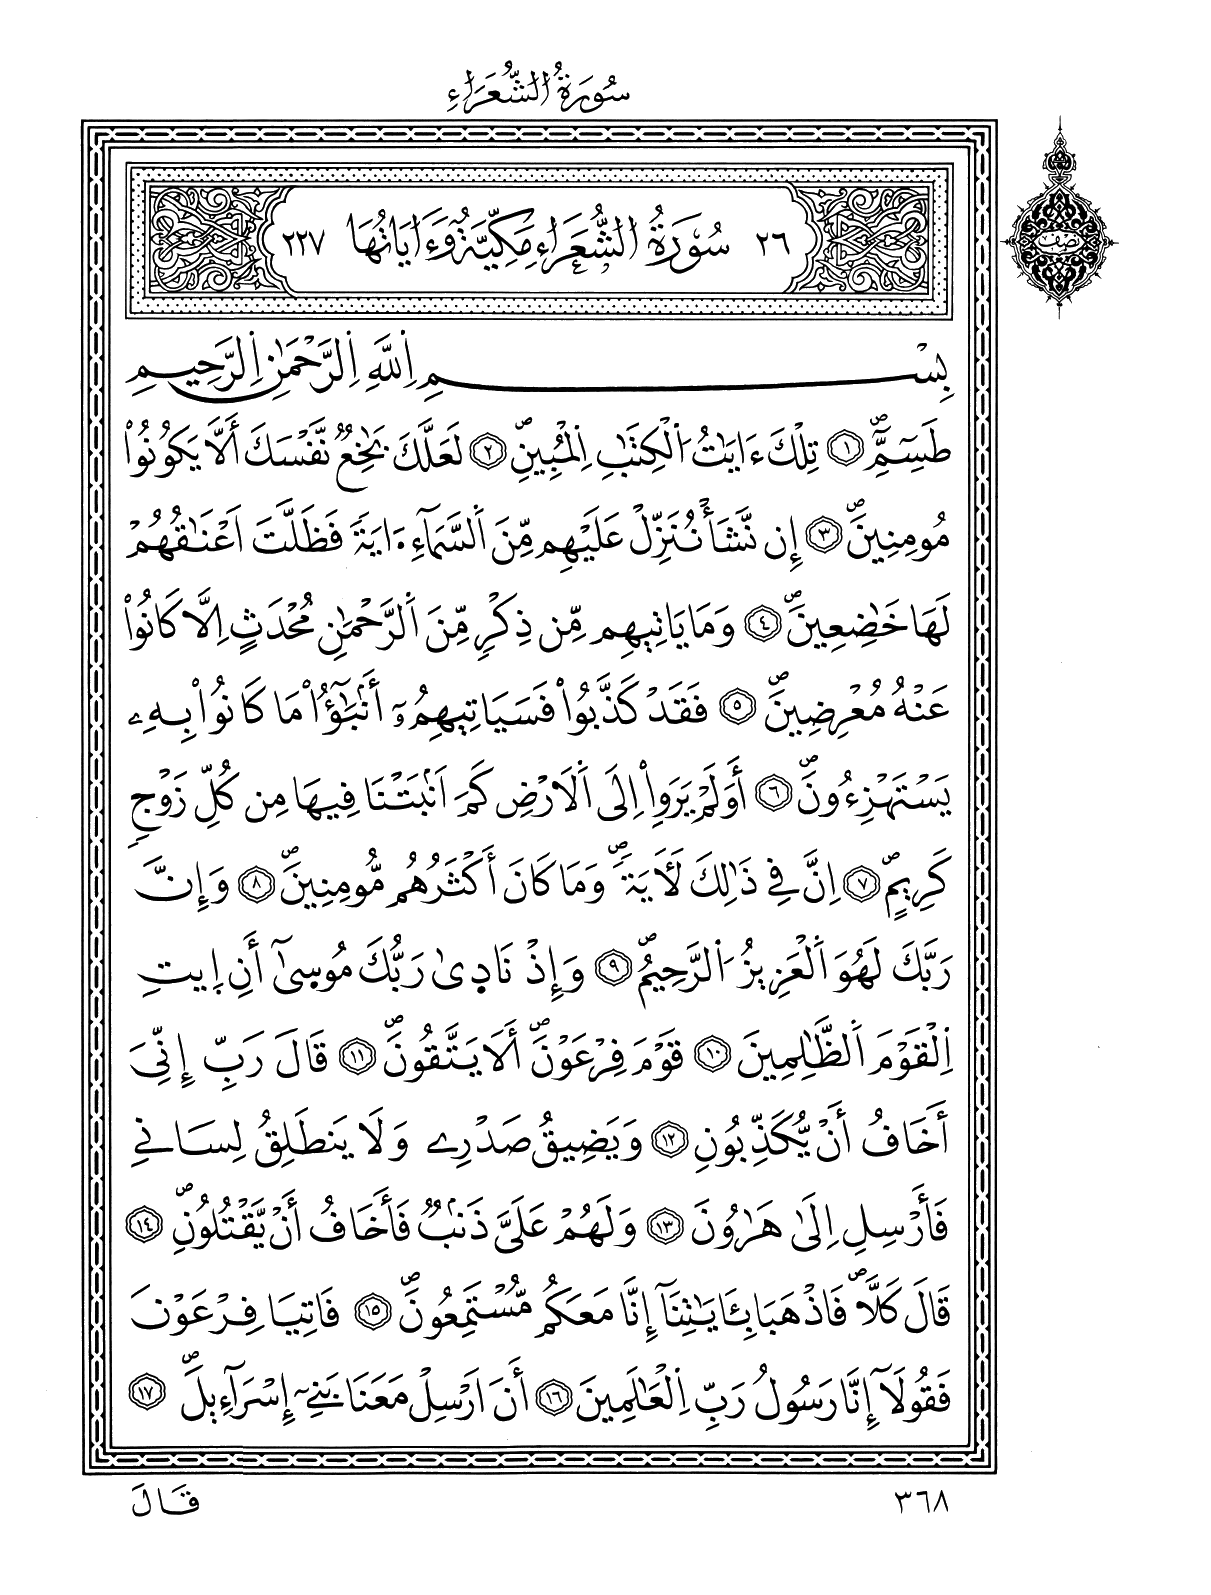 سُورَةُ الشُّعَرَاءِ
نصف
٢٦ سُورَةُ الشُّعَرَاءِ مَكِّيَّةٌ وَءَايَاتُهَا ٢٢٧
بِسْمِ اِللَّهِ اِلرَّحْمَٰنِ اِلرَّحِيمِ
طَسِٓمِّٓۖ ١ تِلْكَ ءَايَٰتُ اُلْكِتَٰبِ اِلْمُبِينِۖ ٢ لَعَلَّكَ بَٰخِعٞ نَّفْسَكَ أَلَّا يَكُونُواْ
مُومِنِينَۖ ٣ إِن نَّشَأْ نُنَزِّلْ عَلَيْهِم مِّنَ اَلسَّمَآءِ ءَايَةٗ فَظَلَّتَ اَعْنَٰقُهُمْ
لَهَا خَٰضِعِينَۖ ٤ وَمَا يَاتِيهِم مِّن ذِكْرٖ مِّنَ اَلرَّحْمَٰنِ مُحْدَثٍ اِلَّا كَانُواْ
عَنْهُ مُعْرِضِينَۖ ٥ فَقَدْ كَذَّبُواْ فَسَيَاتِيهِمُۥٓ أَنۢبَٰٓؤُاْ مَا كَانُواْ بِهِۦ
يَسْتَهْزِءُونَۖ ٦ أَوَلَمْ يَرَوِاْ اِلَى اَلَارْضِ كَمَ اَنۢبَتْنَا فِيهَا مِن كُلِّ زَوْجٖ
كَرِيمٍۖ ٧ اِنَّ فِي ذَٰلِكَ لَأٓيَةٗۖ وَمَا كَانَ أَكْثَرُهُم مُّومِنِينَۖ ٨ وَإِنَّ
رَبَّكَ لَهُوَ اَلْعَزِيزُ اُلرَّحِيمُۖ ٩ وَإِذْ نَادٜىٰ رَبُّكَ مُوسٜىٰٓ أَنِ اِيتِ
اِلْقَوْمَ اَلظَّٰلِمِينَ ١٠ قَوْمَ فِرْعَوْنَۖ أَلَا يَتَّقُونَۖ ١١ قَالَ رَبِّ إِنِّيَ
أَخَافُ أَنْ يُّكَذِّبُونِ ١٢ وَيَضِيقُ صَدْرِے وَلَا يَنطَلِقُ لِسَانِے
فَأَرْسِلِ اِلَىٰ هَٰرُونَ ١٣ وَلَهُمْ عَلَيَّ ذَنۢبٞ فَأَخَافُ أَنْ يَّقْتُلُونِۖ ١٤
قَالَ كَلَّاۖ فَاذْهَبَا بِـَٔايَٰتِنَآ إِنَّا مَعَكُم مُّسْتَمِعُونَۖ ١٥ فَاتِيَا فِرْعَوْنَ
فَقُولَآ إِنَّا رَسُولُ رَبِّ اِلْعَٰلَمِينَ ١٦ أَنَ اَرْسِلْ مَعَنَا بَنِےٓ إِسْرَآءِيلَۖ ١٧
٣٦٨
قَالَ